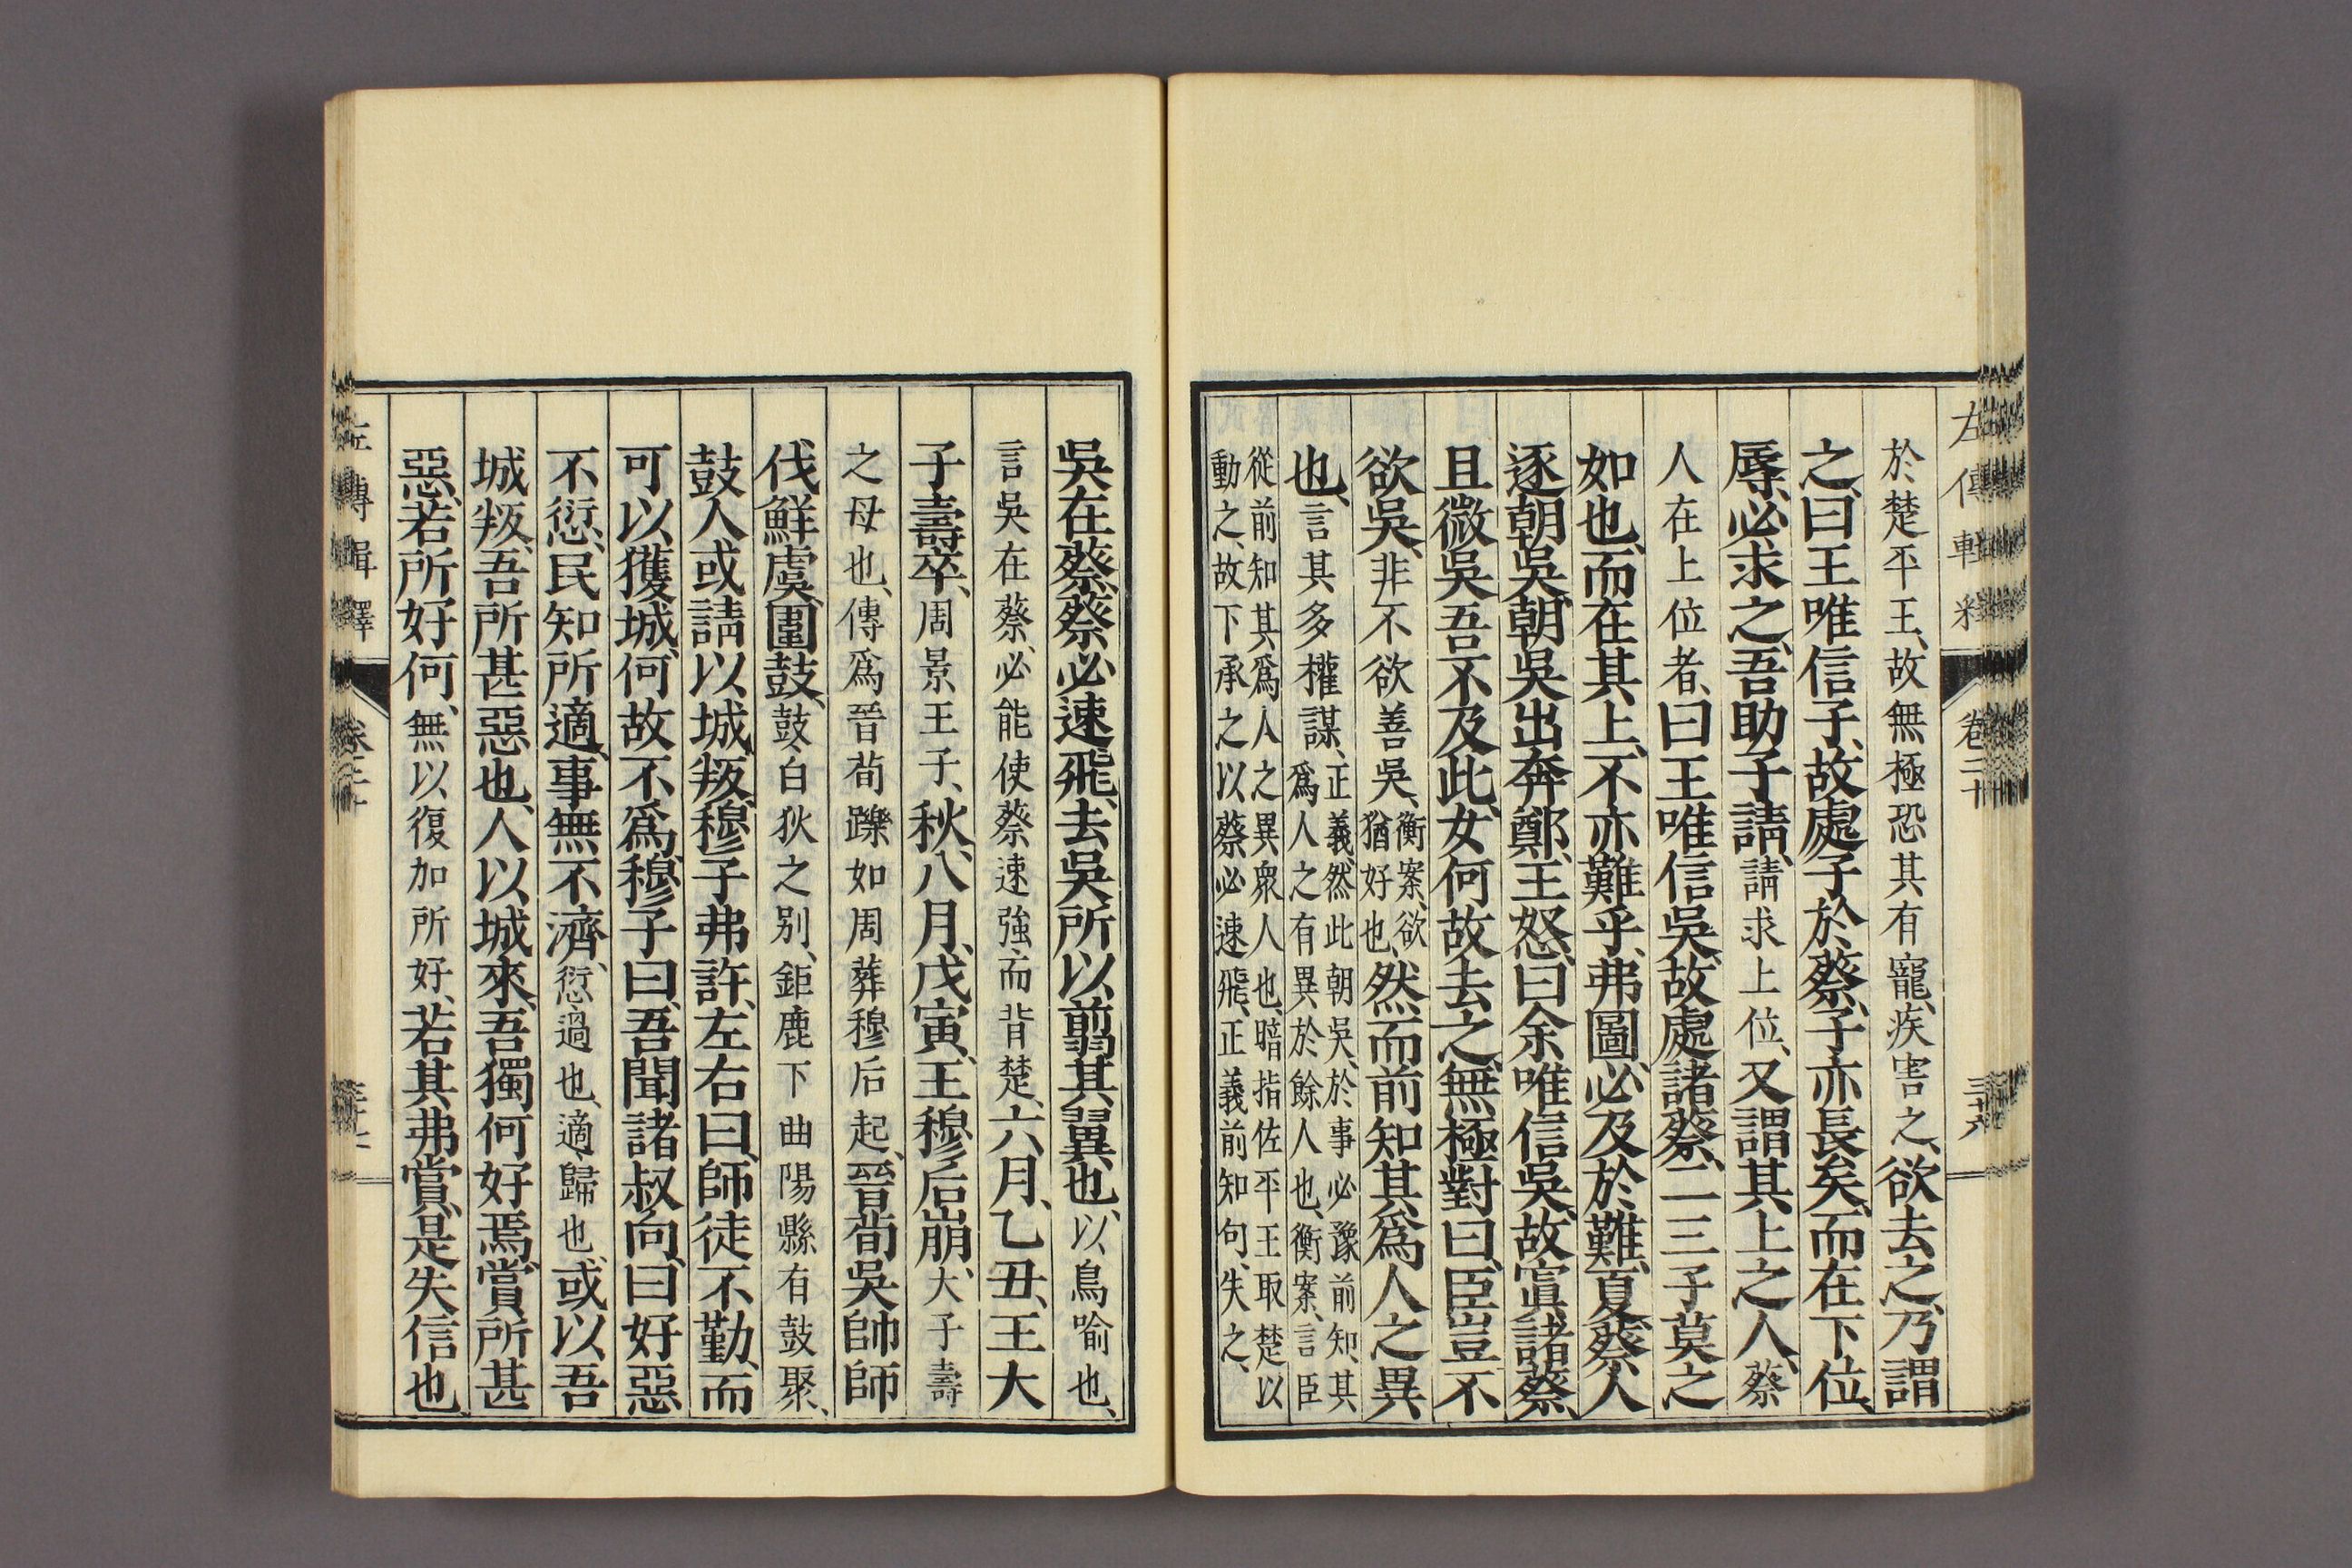 於楚平王、故無極恐其有寵、疾害之、欲去之、乃謂
之、曰王唯信子、故處子於蔡、子亦長矣、而在下位、
辱、必求之、吾助子請、請求上位、又謂其上之人、蔡
人在上位者、曰王唯信吳、故處諸蔡、二三子莫之
如也、而在其上、不亦難乎、弗圖、必及於難、夏、蔡人
逐朝吳、朝吳出奔鄭、王怒、曰余唯信吳、故寘諸蔡、
且微吳、吾不及此、女何故去之、無極對曰、臣豈不
欲吳、非不欲善吳、衡案、欲猶好也、然而前知其爲人之異
也、言其多權謀、正義、然此朝吳、於事必豫前知、其爲人之有異於餘人也、衡案、言臣
從前知其爲人之異衆人也、暗指佐平王取楚以動之、故下承之以蔡必速飛、正義前知句、失之、
吳在蔡、蔡必速飛、去吳所以翦其翼也、以鳥喻也、
言吳在蔡、必能使蔡速強而背楚、六月、乙丑、王大
子壽卒、周景王子、秋、八月、戊寅、王穆后崩、大子壽
之母也、傳爲晉荀躒如周葬穆后起、晉荀吳帥師
伐鮮虞、圍鼓、鼓、白狄之別、鉅鹿下曲陽縣有鼓聚、
鼓人或請以城叛、穆子弗許、左右曰、師徒不勤、而
可以獲城、何故不爲、穆子曰、吾聞諸叔向、曰好惡
不愆、民知所適、事無不濟、愆過也、適歸也、或以吾
城叛、吾所甚惡也、人以城來、吾獨何好焉、賞所甚
惡、若所好何、無以復加所好、若其弗賞、是失信也、